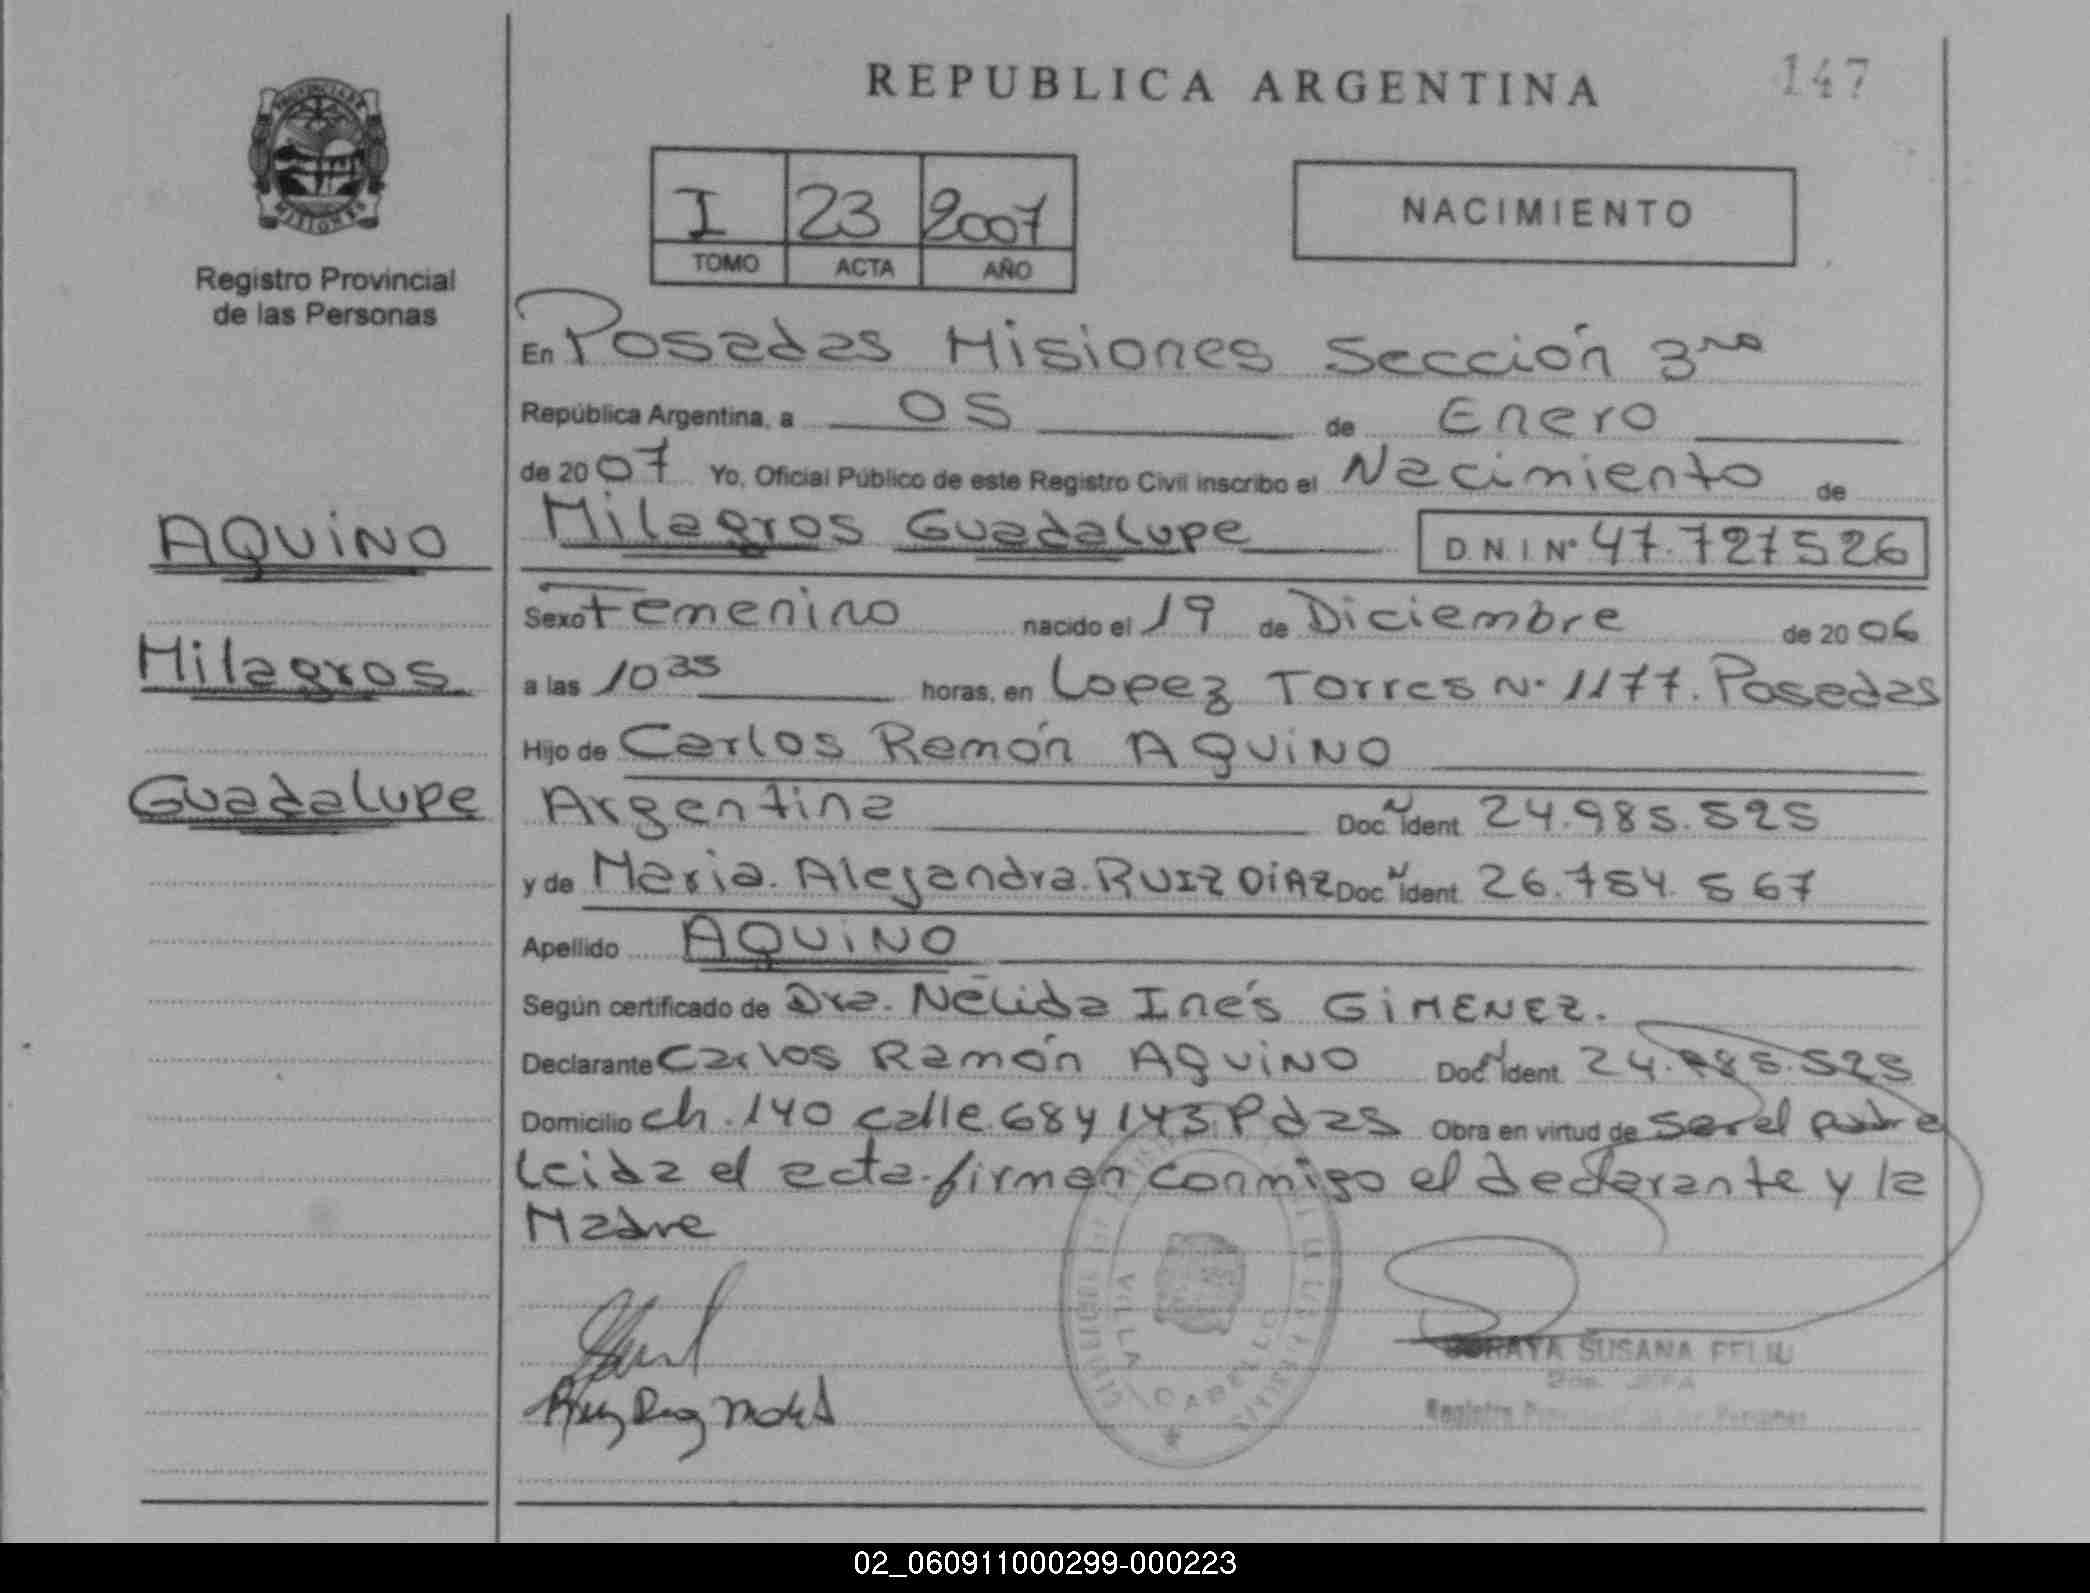 REPUBLICA ARGENTINA
147
PROVINCIA DE
MISIONES
Registro Provincial
de las Personas
I 23 2007
TOMO ACTA AÑO
NACIMIENTO
En Posadas Misiones Sección 3ra
República Argentina, a 05 de Enero
de 2007 Yo, Oficial Público de este Registro Civil inscribo el Nacimiento de
Milagros Guadalupe D.N.I Nº 47.727526
AQUINO
Milagros
Guadalupe
Sexo Femenino nacido el 19 de Diciembre de 2006
a las 10 35 horas, en Lopez Torres Nº 1177. Posadas
Hijo de Carlos Ramón AQUINO
Argentina Doc. Ident. 24.985.525
y de Maria. Alejandra. RUIZ DIAZ Doc. Ident. 26.754.567
Apellido AQUINO
Según certificado de Dra. Nélida Inés GIMENEZ.
Declarante Carlos Ramón AQUINO Doc. Ident. 24.985.525
Domicilio ch. 140 calle 68 y 143 Pdas Obra en virtud de ser el padre
Leida el acta firman conmigo el declarante y la
Madre
VILLA CABELLO
SORAYA SUSANA FELIU
2da. JEFA
Registro Provincial de las Personas
02_060911000299-000223